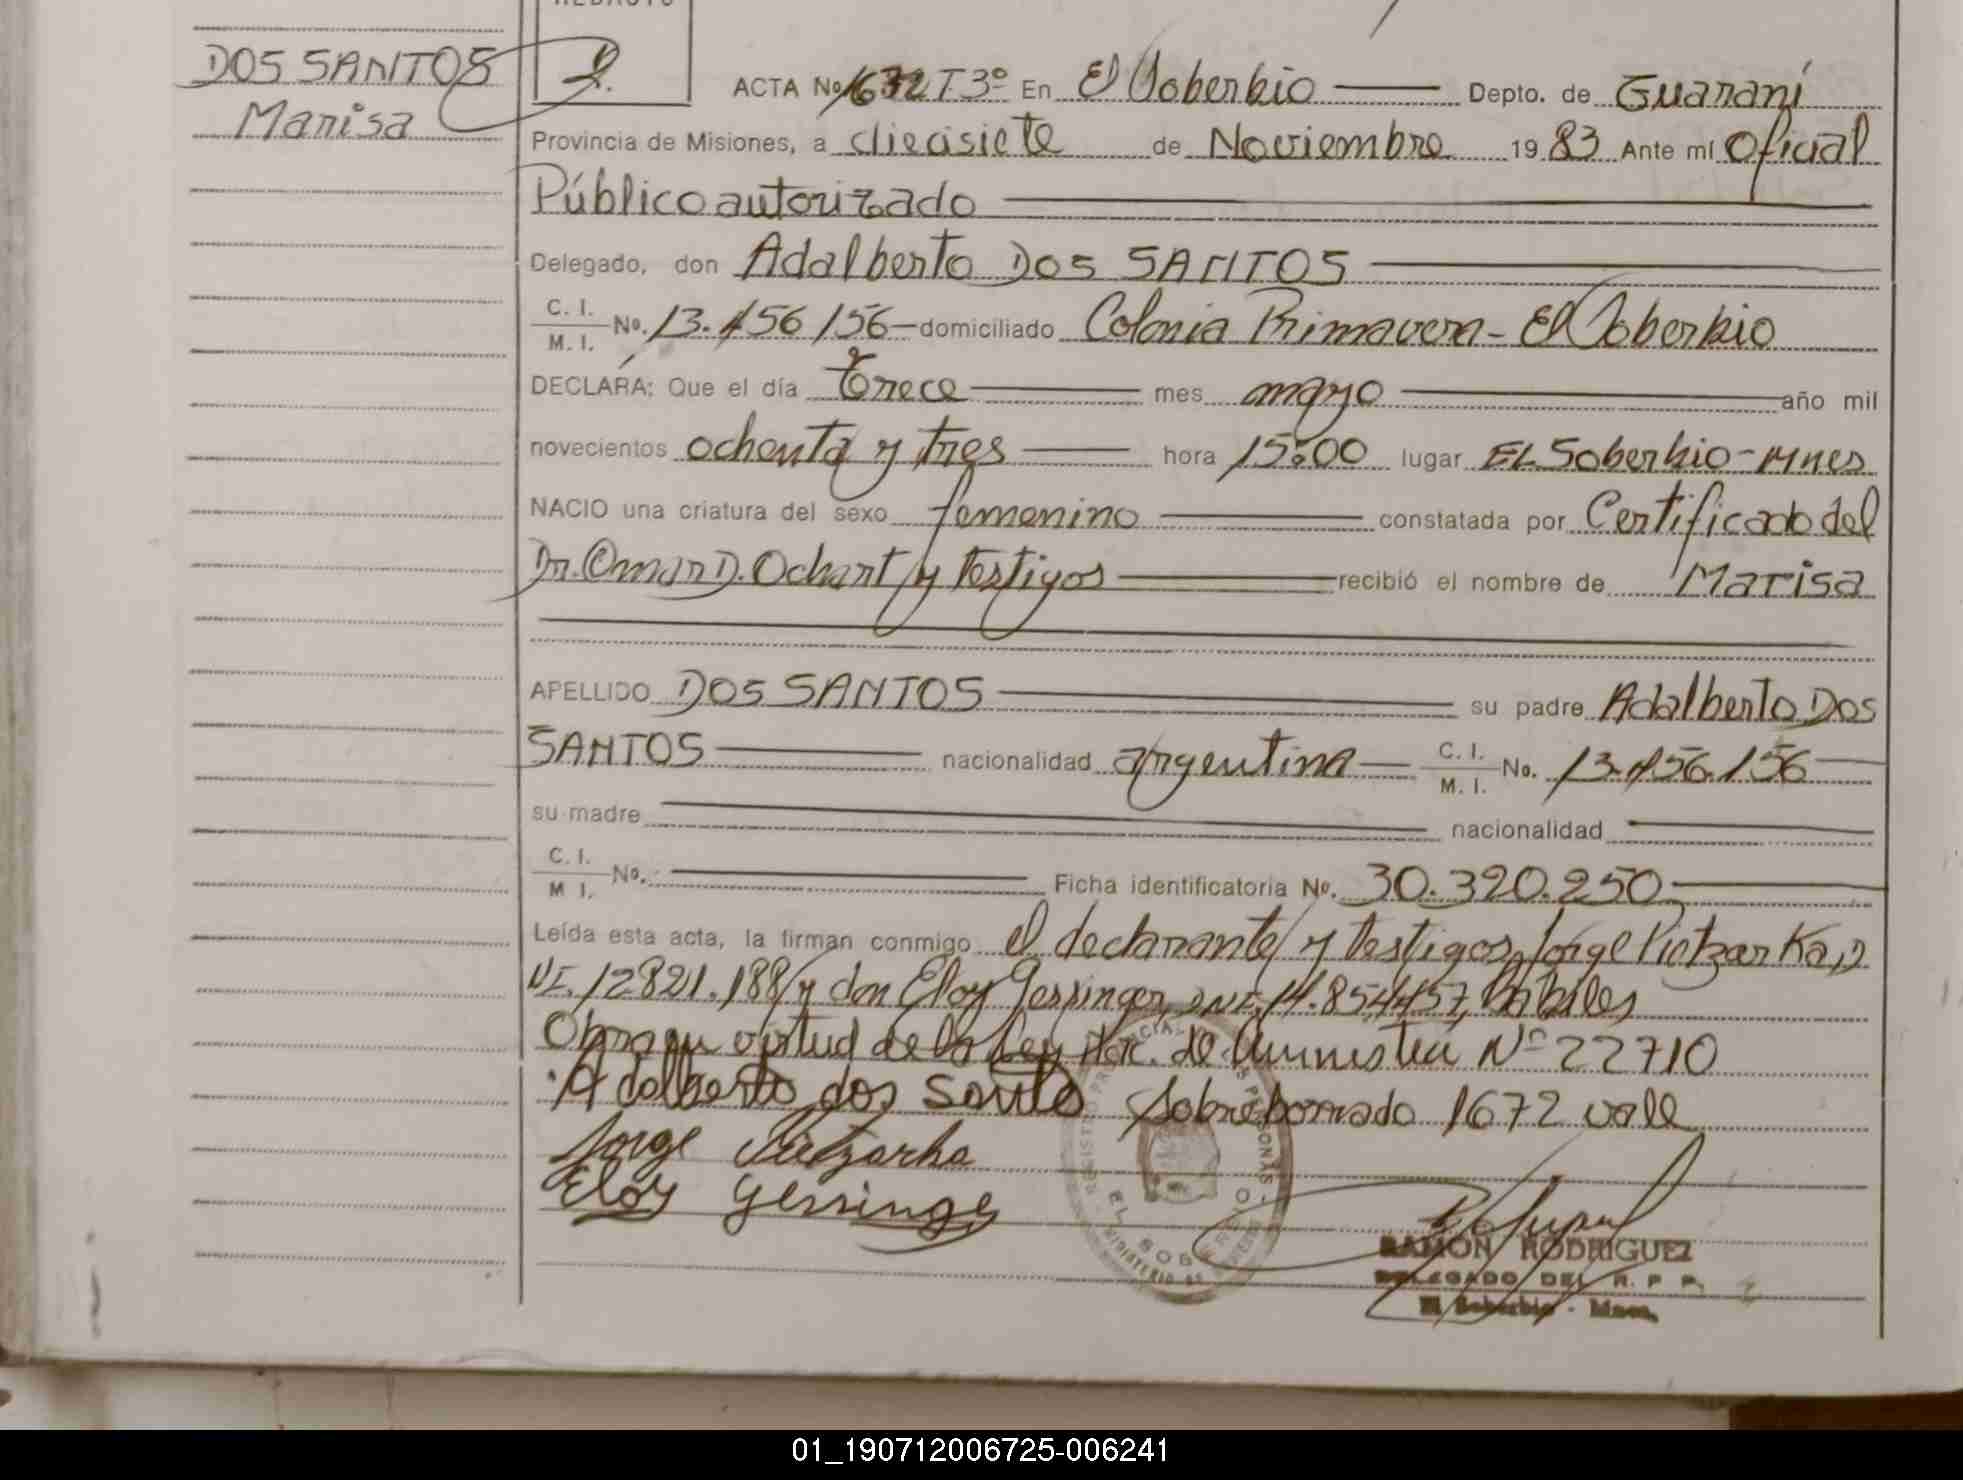 DOS SANTOS
Marisa
REDACTO
ACTA No 1632 T3º En El Soberbio Depto. de Guaraní
Provincia de Misiones, a diecisiete de Noviembre 1983 Ante mí Oficial
Público autorizado
Delegado, don Adalberto DOS SANTOS
C. I.
M. I. No. 13.456156 domiciliado Colonia Primavera - El Soberbio
DECLARA: Que el día trece mes mayo año mil
novecientos ochenta y tres hora 15:00 lugar EL Soberbio - Mnes
NACIO una criatura del sexo femenino constatada por Certificado del
Dr. Omar D. Ochart y testigos recibió el nombre de Marisa
APELLIDO DOS SANTOS su padre Adalberto DOS
SANTOS nacionalidad argentina C. I. M. I. No. 13.456.156
su madre nacionalidad
C. I.
M I. No. Ficha identificatoria No. 30.320.250
Leída esta acta, la firman conmigo el declarante y testigos Jorge Pietzarka, D
NI. 12821.188 y don Eloy Gessinger, DNI. 14.854457, hábiles
Obra en virtud de la Ley Nac. de Amnistia Nº 22710
Adalberto dos Santos Sobreborrado 1672 vale
Jorge Pietzarka
Eloy Gessinger
REGISTRO PROVINCIAL DE LAS PERSONAS
EL SOBERBIO
RAMON RODRIGUEZ
DELEGADO DEL R. P. P.
El Soberbio - Mnes.
01_190712006725-006241